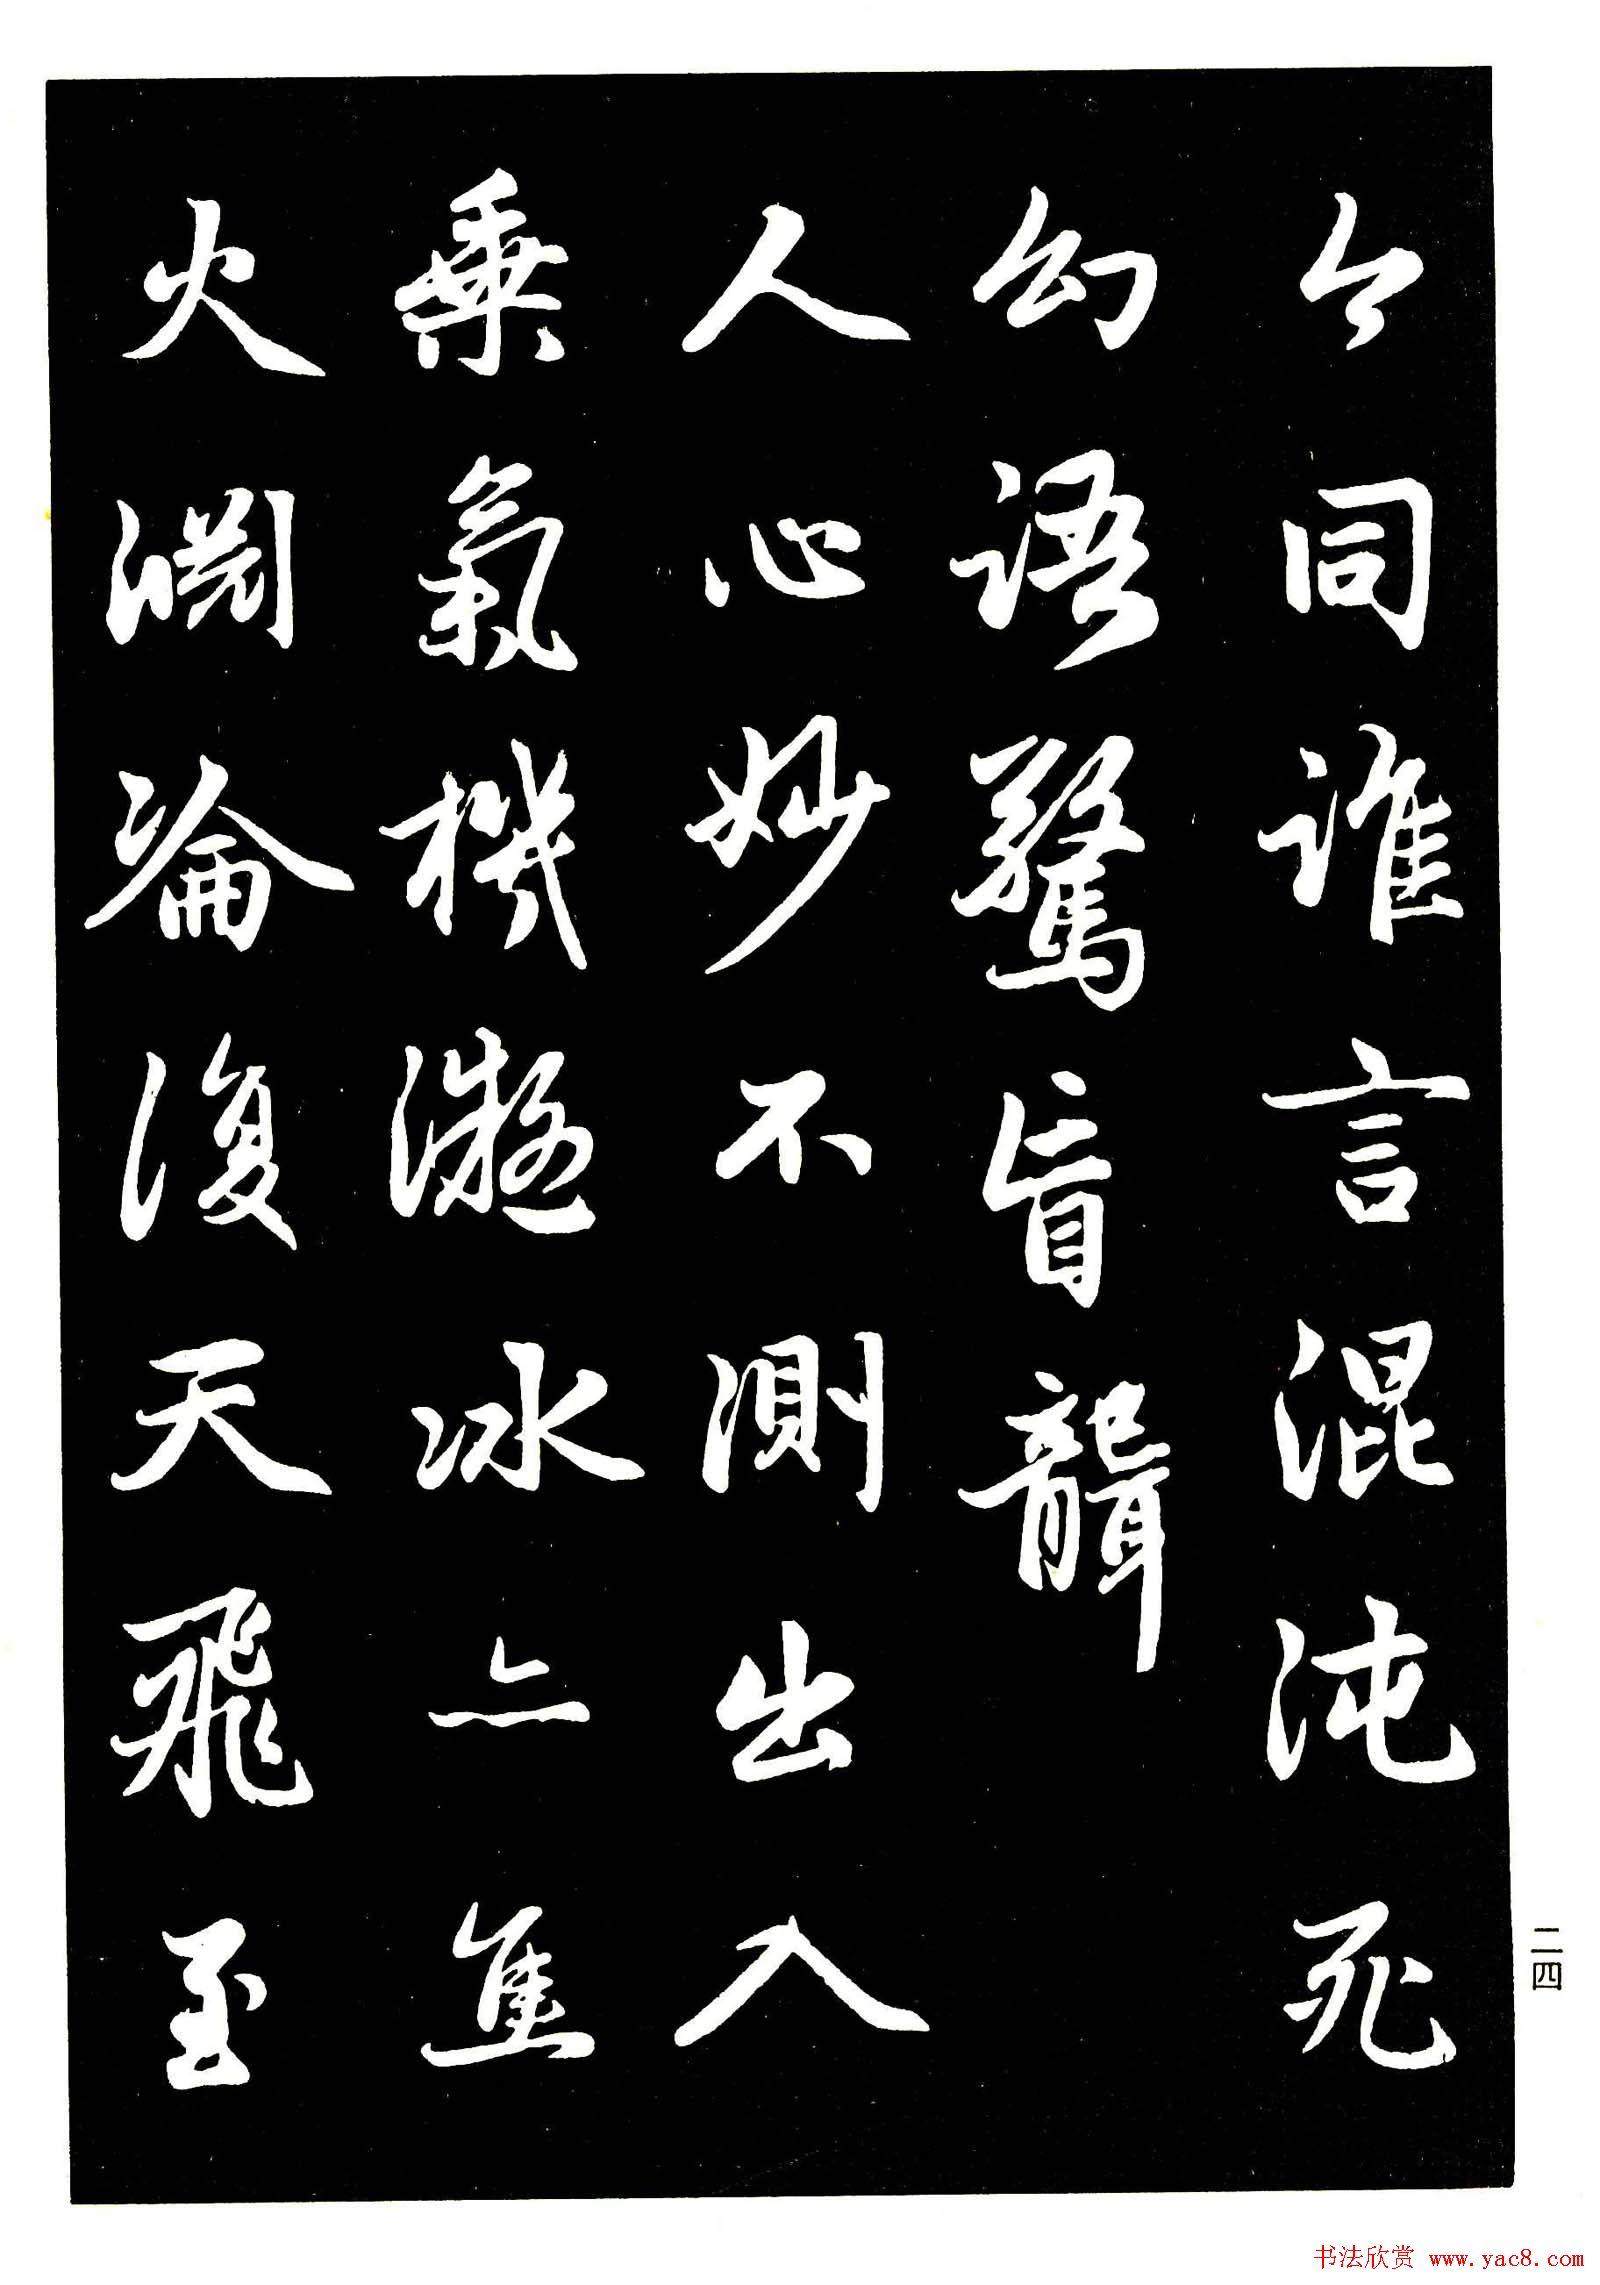 今同誰言混沌死
幻語驚盲聾
人心妙不測出入
乘氣機凝冰亦焦
火淵淪復天飛至
二四
书法欣赏 www.yac8.com